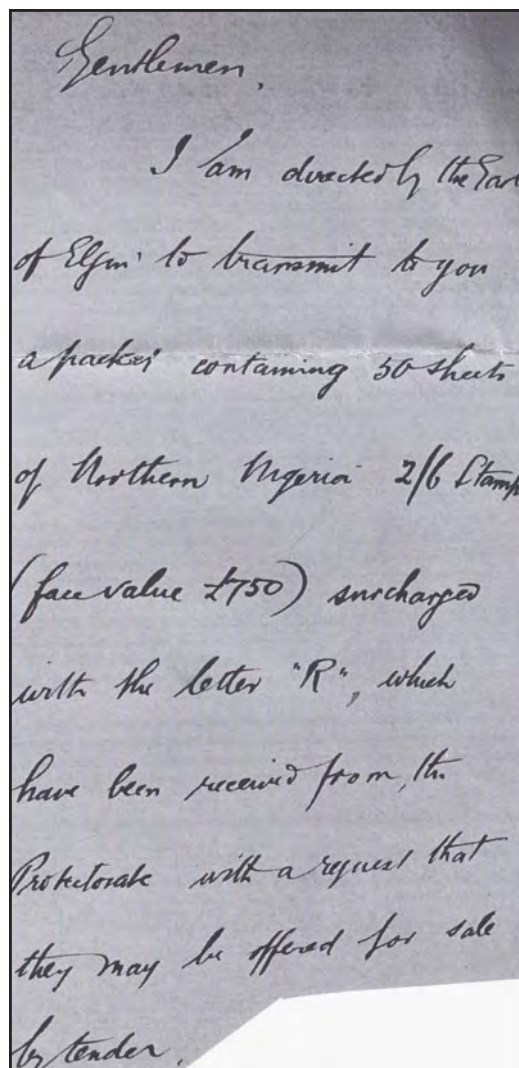 Gentlemen,
I am directed by the Earl
of Elgin to transmit to you
a packet containing 50 sheets
of Northern Nigeria 2/6 Stamp
(face value £750) surcharged
with the letter "R", which
have been received from the
Protectorate with a request that
they may be offered for sale
by tender.